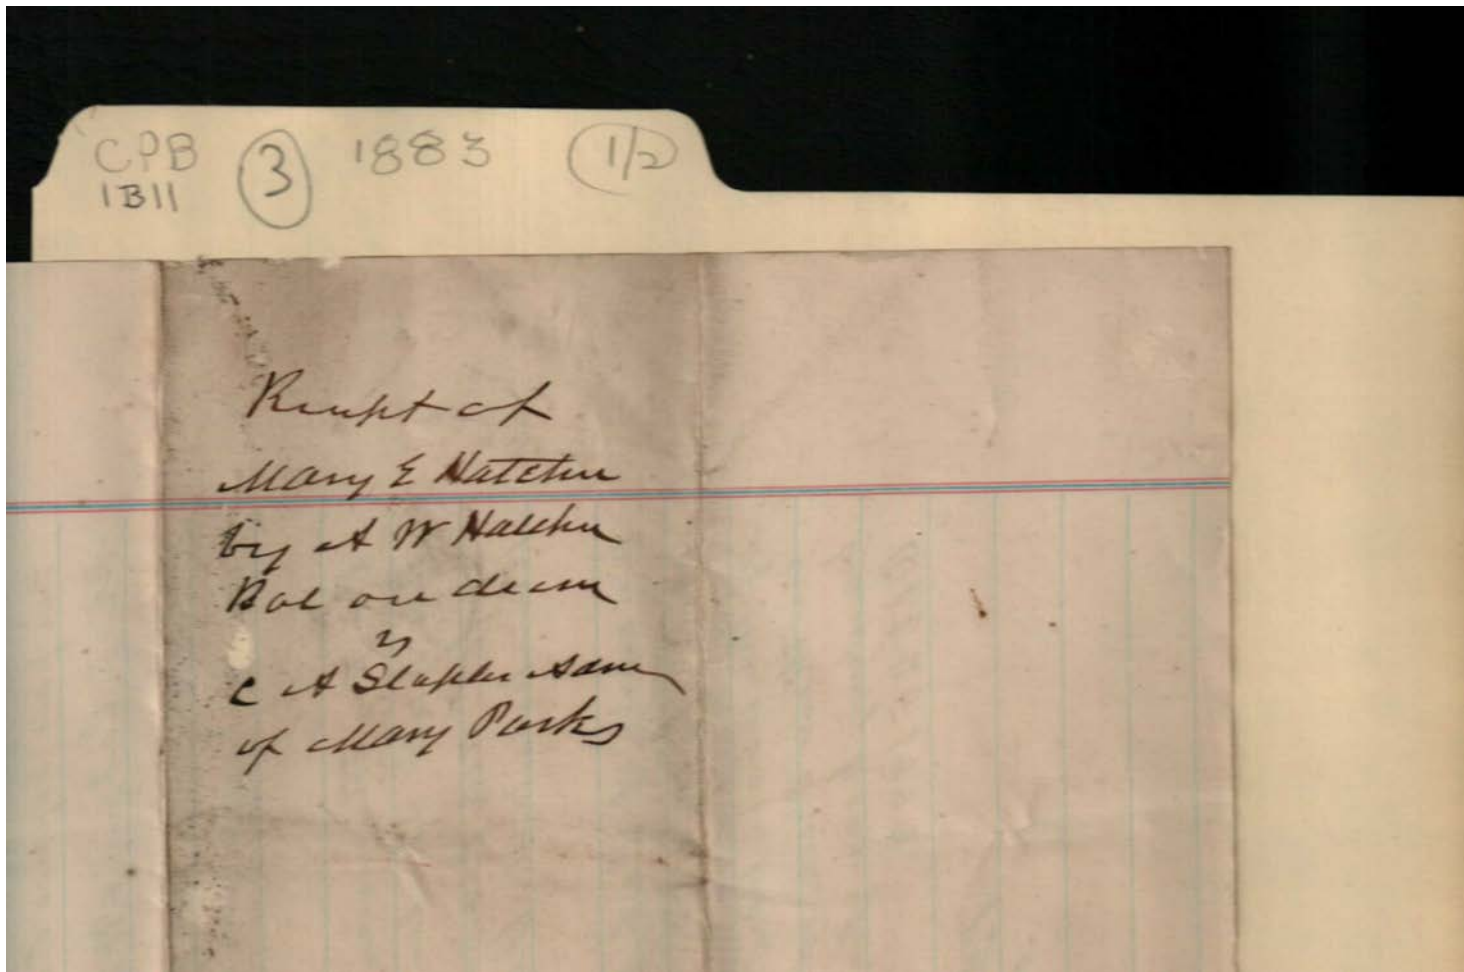 CPB 3 1883 1/2
1B11
Receipt of
Mary E Hatcher
by A W Hatcher
Bal on
vs
C A Stapler Adm
of Mary Parks